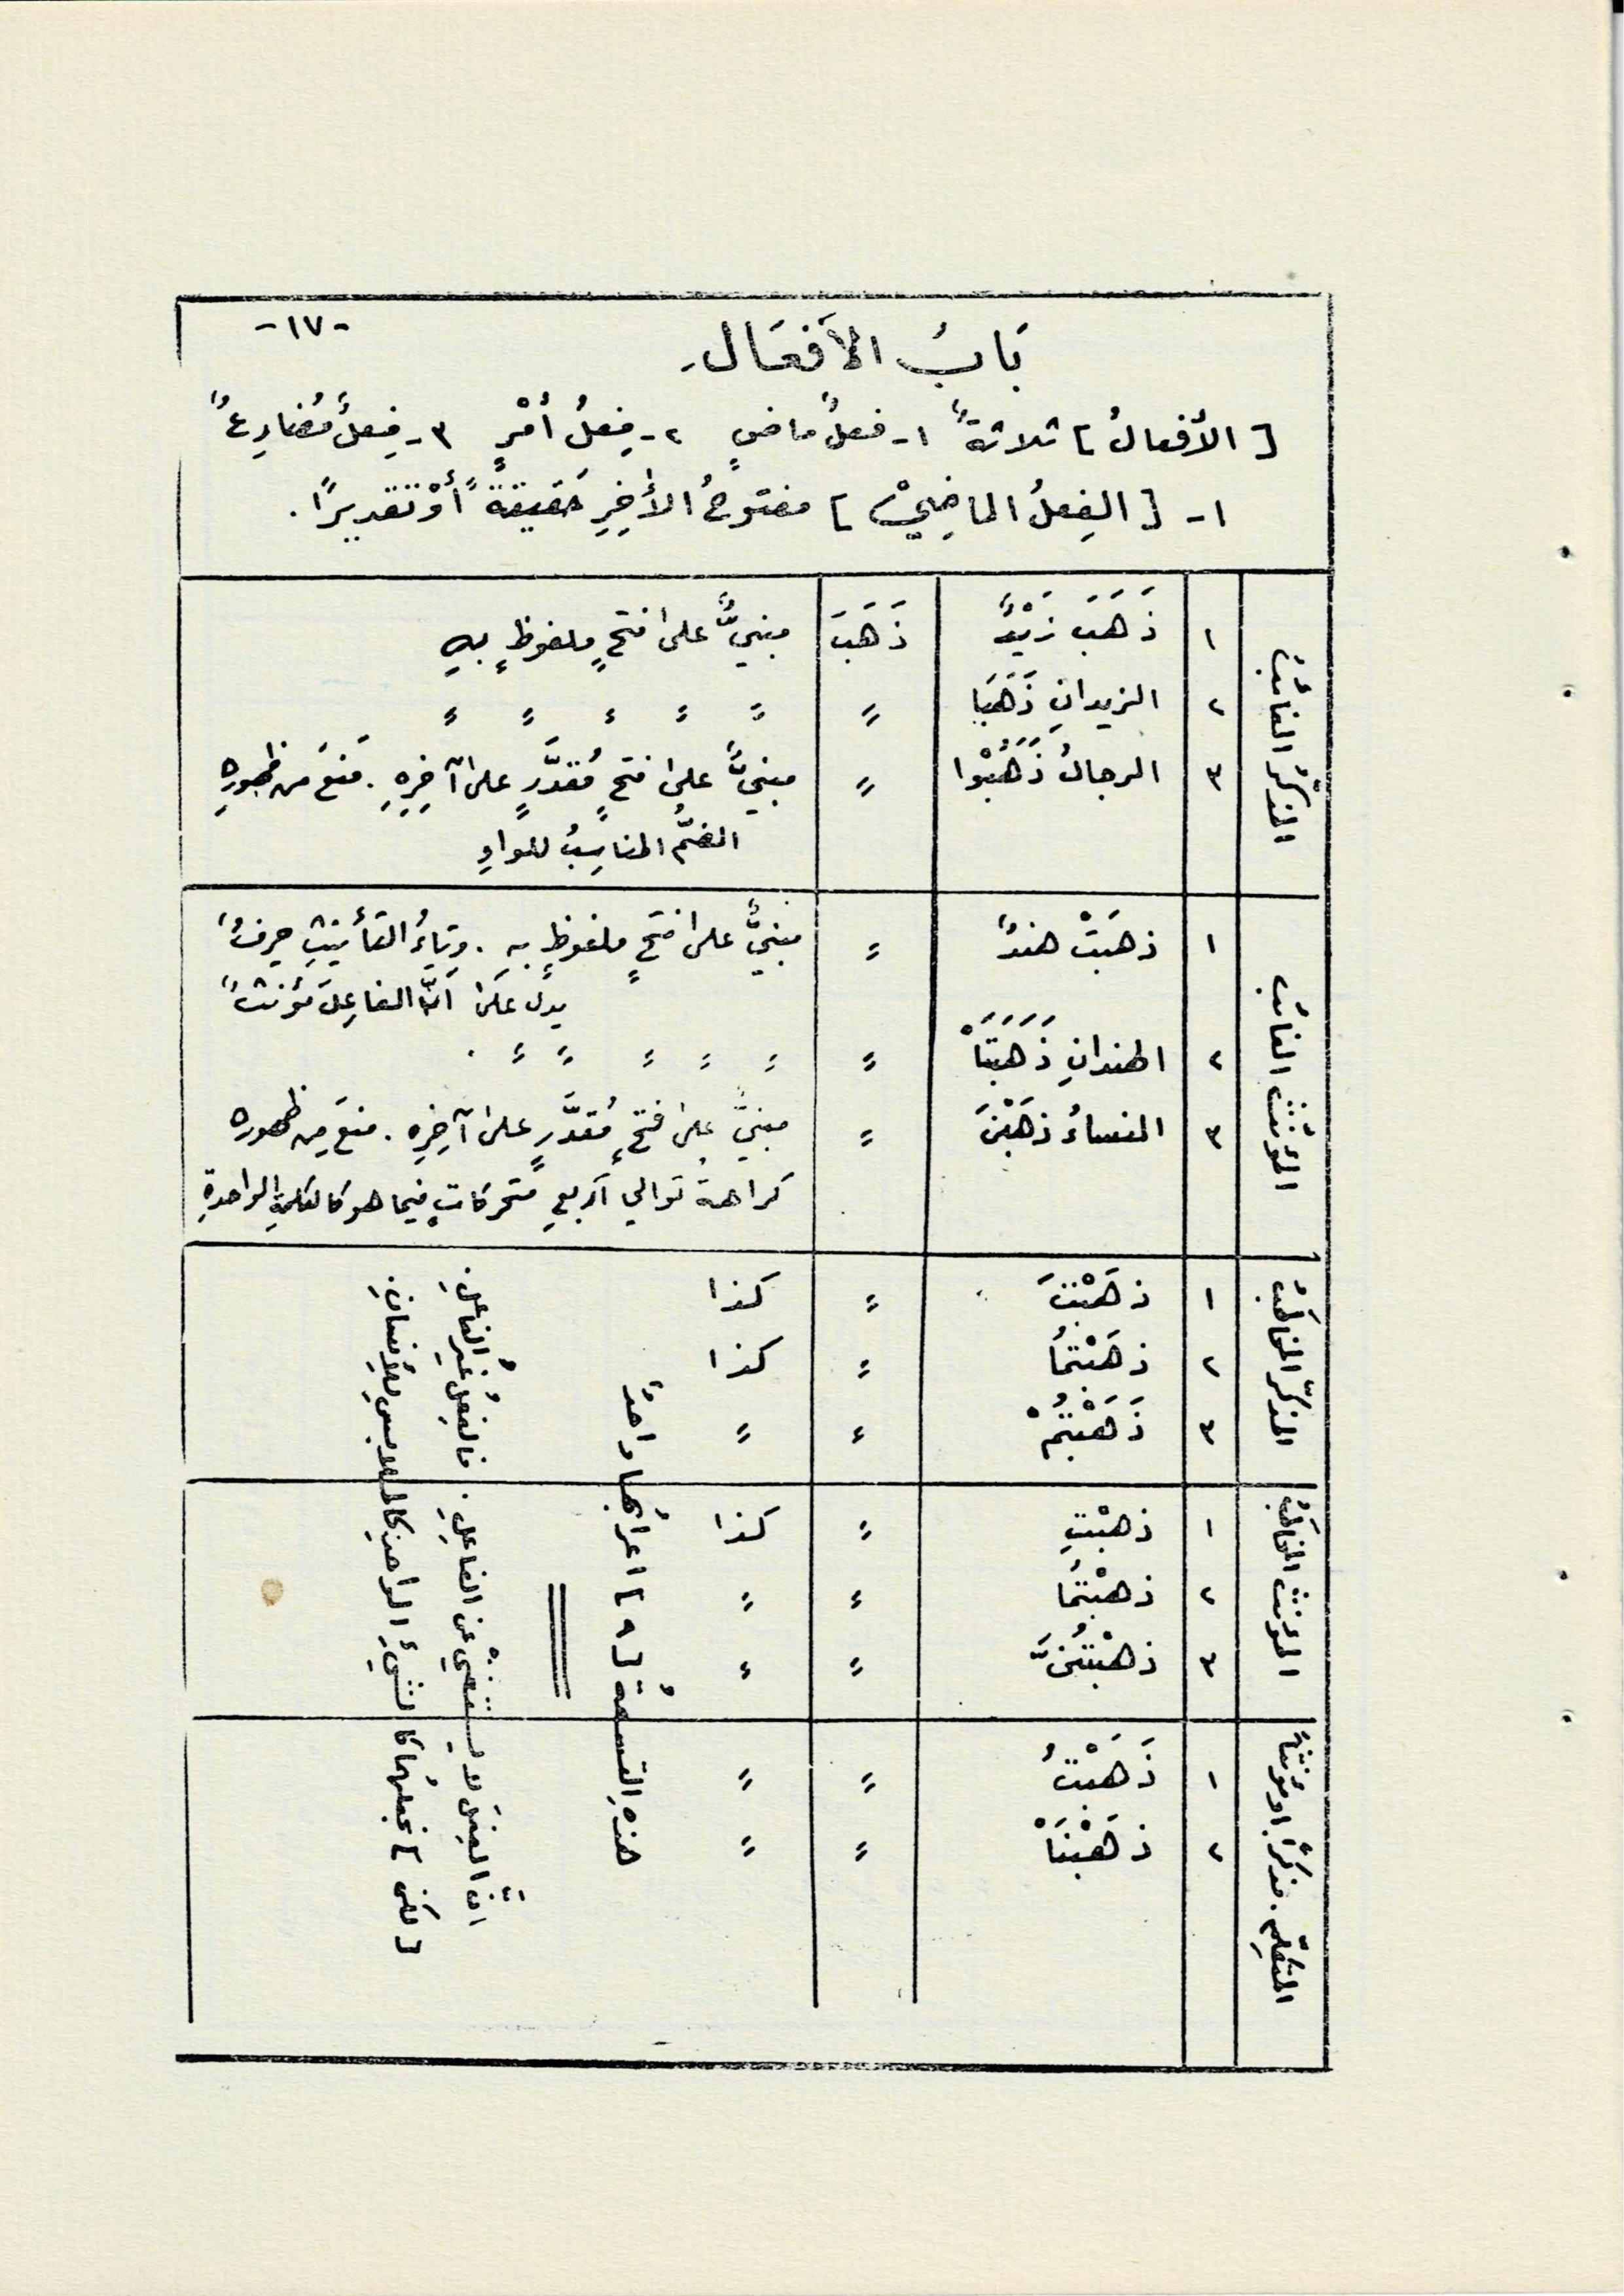 -١٧-
بَابُ الأَفعَال.
[ الأفعالُ ] ثلاثةٌ ١- فعلٌ ماضٍ ٢- فِعلُ أمْرٍ ٣- فِعلٌ مُضارِعٌ
١- [ الفِعلُ الماضِيْ ] مفتوحُ الأَخِرِ حَقيقةً أَوْ تقديرًا.
المذكّرُ الغائبُ
١ ذَهَبَ زَيْدٌ ذَهَبَ مبنيٌّ على فتحٍ ملفوظٍ بهِ
٢ الزيدانِ ذَهَبَا 〃 〃 〃 〃 〃 〃
٣ الرجالُ ذَهَبُوْا 〃 مبنيٌّ على فتحٍ مُقدَّرٍ على آخِرِهِ. مَنعَ من ظهورِهِ
الضمُّ المناسِبُ للواوِ
المؤنّث الغائب
١ ذهبَتْ هندٌ 〃 مبنيٌّ على فتحٍ ملفوظٍ بهِ. وتاءُ التأنيثِ حرفٌ
يدلُّ عَلَى أنَّ الفاعِلَ مؤنثٌ
٢ الهندانِ ذَهَبَتَاْ 〃 〃 〃 〃 〃 〃 〃.
٣ النساءُ ذهَبْنَ 〃 مبنيٌّ على فتحٍ مُقدَّرٍ على آخِرِهِ. منعَ مِن ظهوره
كراهةُ تَوالي أربعِ متحركاتٍ فيما هو كالكلمةِ الواحدةِ
المذكّر المخاطَبُ
١ ذهَبْتَ 〃 كذا
٢ ذهَبْتُمَا 〃 كذا
٣ ذَهَبْتُمْ 〃 〃
المؤنث المخاطَبُ
١ ذهبْتِ 〃 كذا
٢ ذهبْتُمَا 〃 〃
٣ ذهبْتُنَّ 〃 〃
المتكلِّم. مذكرًا أو مؤنثًا
١ ذَهَبْتُ 〃 〃
٢ ذهَبْنَاْ 〃 〃
هذهِ القسمةُ [ ٩ ] اعرابُها واحدٌ
انَّ الفعلَ لا يستغنيْ عن الفاعلِ. فالفعلُ غيرُ الفاعلِ.
[ لكن ] نجعلهُما كالشيءِ الواحدِ